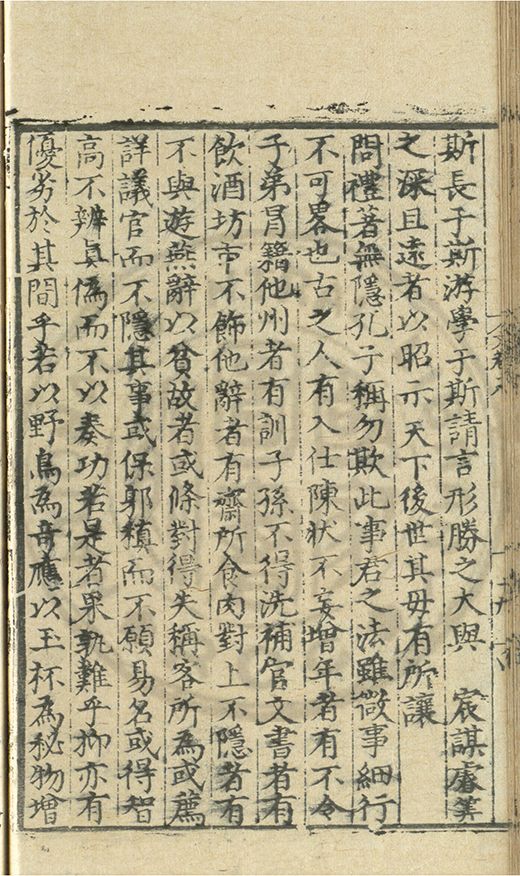 斯長于斯游學于斯請言形勝之大與　宸謀睿筭
之深且遠者以昭示天下後世其毋有所讓
問禮著無隱孔子稱勿欺此事君之法雖微事細行
不可畧也古之人有入仕陳狀不妄增年者有不令
子弟冒籍他州者有訓子孫不得洗補官文書者有
飲酒坊市不飾他辭者有齋所食肉對上不隱者有
不與遊燕辭以貧故者或條對得失稱客所為或薦
詳議官而不隱其事或保郭稹而不願易名或得智
高不辨真偽而不以奏功若是者果孰難乎抑亦有
優劣於其間乎若以野鳥為奇應以玉杯為秘物增